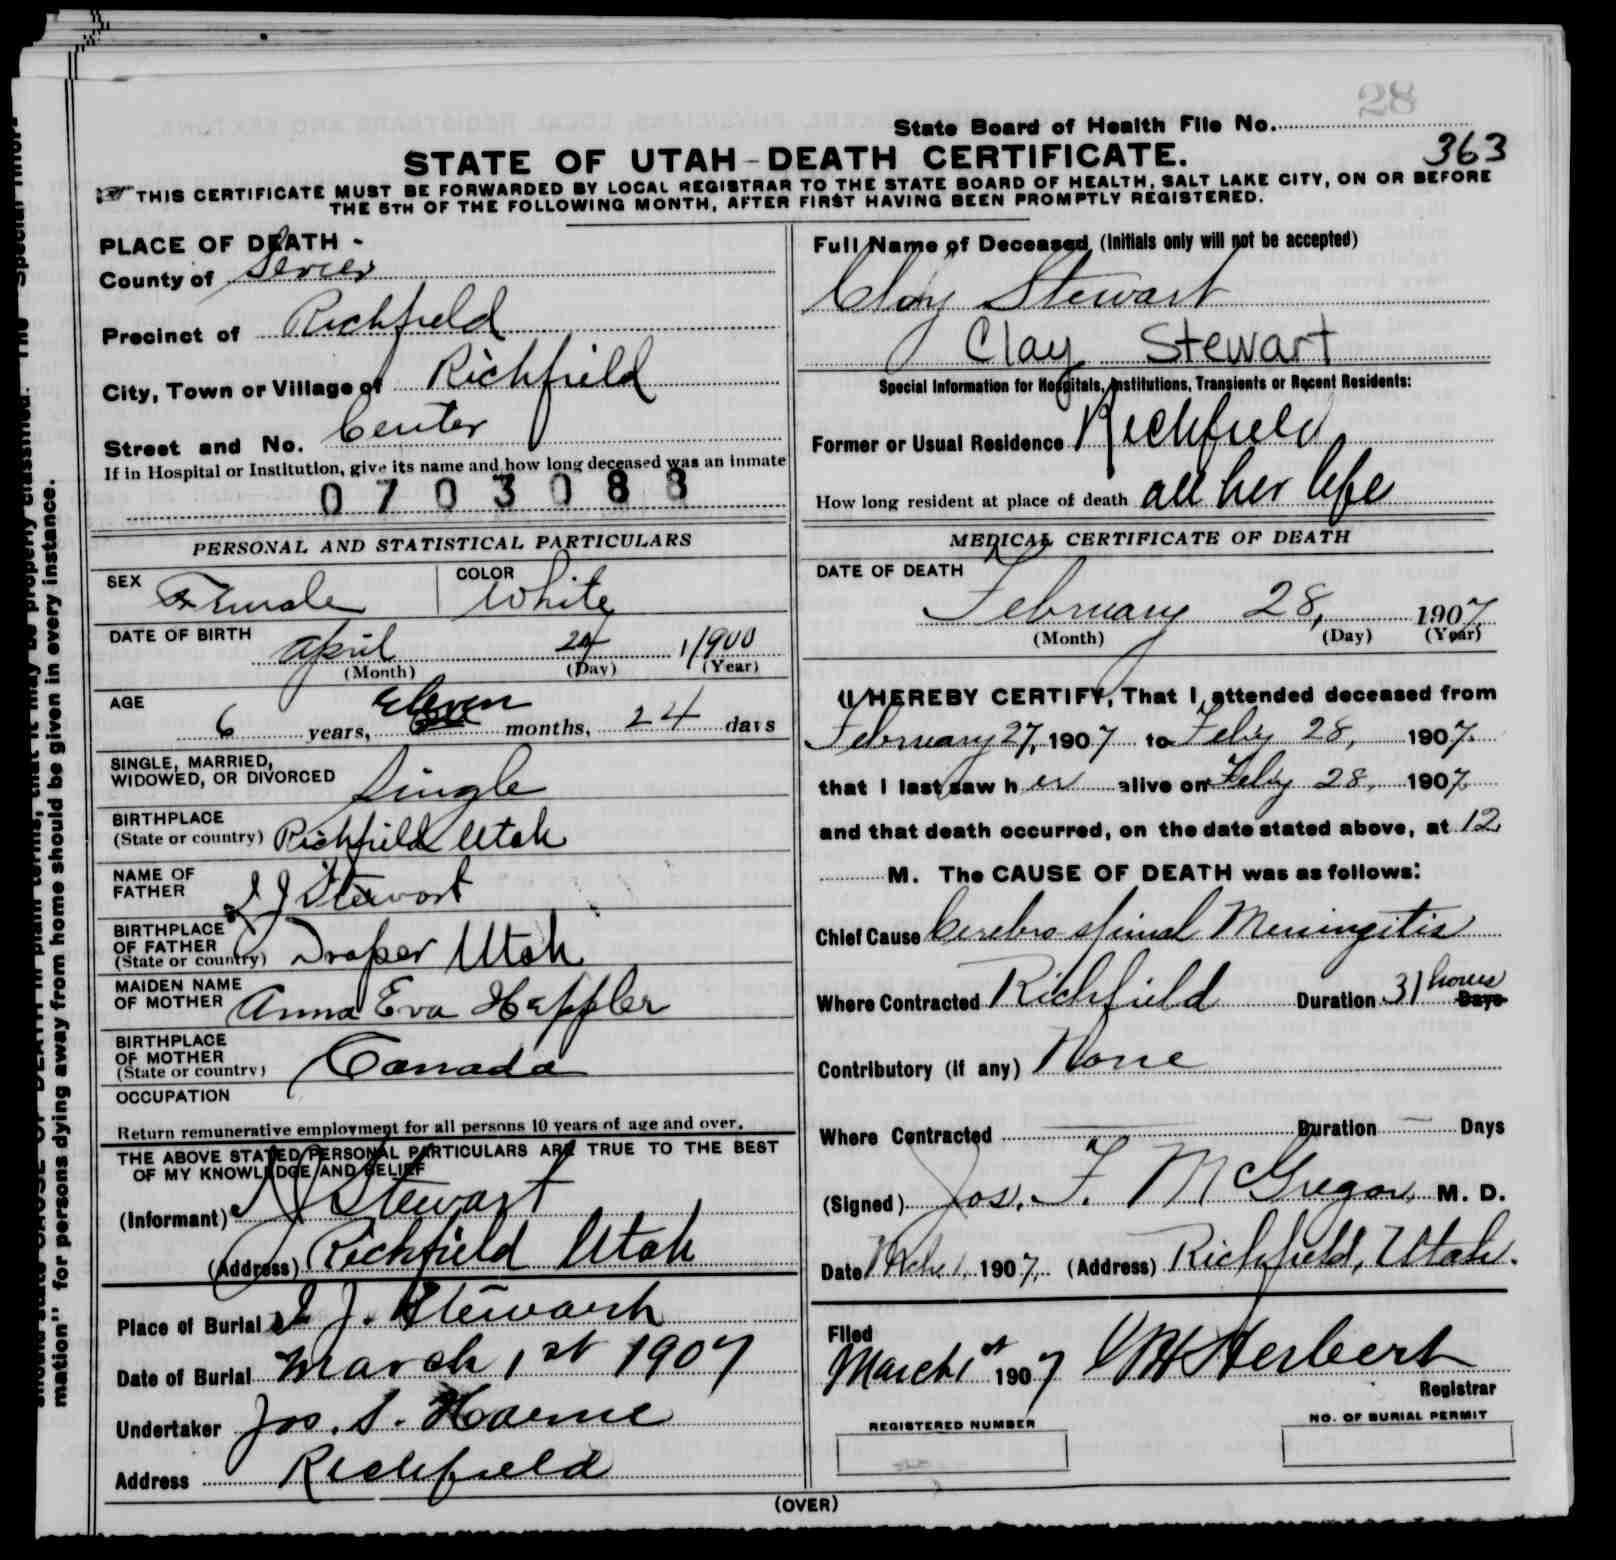 28
State Board of Health File No.
363
STATE OF UTAH - DEATH CERTIFICATE.
THIS CERTIFICATE MUST BE FORWARDED BY LOCAL REGISTRAR TO THE STATE BOARD OF HEALTH, SALT LAKE CITY, ON OR BEFORE
THE 5TH OF THE FOLLOWING MONTH, AFTER FIRST HAVING BEEN PROMPTLY REGISTERED.
PLACE OF DEATH -
County of Sevier
Precinct of Richfield
City, Town or Village of Richfield
Street and No. Center
If in Hospital or Institution, give its name and how long deceased was an inmate
0703088
PERSONAL AND STATISTICAL PARTICULARS
SEX Female COLOR White
DATE OF BIRTH April 24 1900
(Month) (Day) (Year)
AGE 6 years, Eleven months, 24 days
SINGLE, MARRIED,
WIDOWED, OR DIVORCED Single
BIRTHPLACE
(State or country) Richfield Utah
NAME OF
FATHER J Stewart
BIRTHPLACE
OF FATHER
(State or country) Draper Utah
MAIDEN NAME
OF MOTHER Anna Eva Heppler
BIRTHPLACE
OF MOTHER
(State or country) Canada
OCCUPATION
Return remunerative employment for all persons 10 years of age and over.
THE ABOVE STATED PERSONAL PARTICULARS ARE TRUE TO THE BEST
OF MY KNOWLEDGE AND BELIEF
(Informant) J Stewart
(Address) Richfield Utah
Place of Burial J. Stewart
Date of Burial March 1st 1907
Undertaker Jos. S. Horne
Address Richfield
Full Name of Deceased (Initials only will not be accepted)
Clay Stewart
Clay Stewart
Special Information for Hospitals, Institutions, Transients or Recent Residents:
Former or Usual Residence Richfield
How long resident at place of death all her life
MEDICAL CERTIFICATE OF DEATH
DATE OF DEATH
February 28, 1907
(Month) (Day) (Year)
I HEREBY CERTIFY, That I attended deceased from
February 27, 1907 to Feby 28, 1907
that I last saw her alive on Feby 28, 1907
and that death occurred, on the date stated above, at 12
M. The CAUSE OF DEATH was as follows:
Chief Cause Cerebro spinal Meningitis
Where Contracted Richfield Duration 31 hours Days
Contributory (if any) None
Where Contracted Duration — Days
(Signed) Jos. F. McGregor, M. D.
Date Mch 1, 1907, (Address) Richfield, Utah.
Filed
March 1st 1907 Herbert
Registrar
REGISTERED NUMBER
NO. OF BURIAL PERMIT
(OVER)
mation" for persons dying away from home should be given in every instance.